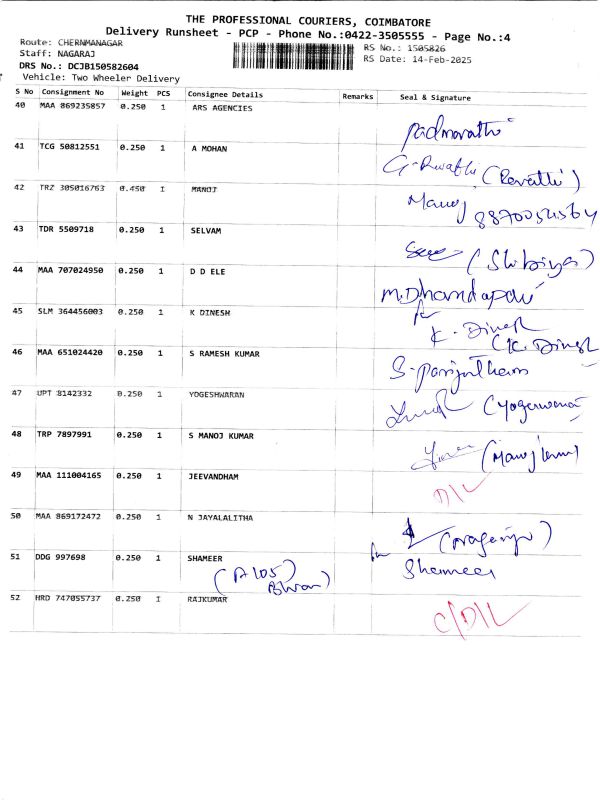 THE PROFESSIONAL COURIERS, COIMBATORE
Delivery Runsheet - PCP - Phone No.:0422-3505555 - Page No.:4
Route: CHERNMANAGAR
RS No.: 1505826
Staff: NAGARAJ
RS Date: 14-Feb-2025
DRS No.: DCJB150582604
Vehicle: Two Wheeler Delivery
S No Consignment No Weight PCS Consignee Details Remarks Seal & Signature
40 MAA 869235857 0.250 1 ARS AGENCIES
Padmavathi
41 TCG 50812551 0.250 1 A MOHAN
(Revathi)
42 TRZ 305016763 0.450 1 MANOJ
Manoj
8870054564
43 TDR 5509718 0.250 1 SELVAM
44 MAA 707024950 0.250 1 D D ELE
M.Dhandapani
45 SLM 364456003 0.250 1 K DINESH
K. Dinesh
(K. Dinesh
46 MAA 651024420 0.250 1 S RAMESH KUMAR
S. Parijatham
47 UPT 8142332 0.250 1 YOGESHWARAN
48 TRP 7897991 0.250 1 S MANOJ KUMAR
49 MAA 111004165 0.250 1 JEEVANDHAM
D/L
50 MAA 869172472 0.250 1 N JAYALALITHA
51 DDG 997698 0.250 1 SHAMEER
Shameer
(A 105)
52 HRD 747055737 0.250 1 RAJKUMAR
C/D/L